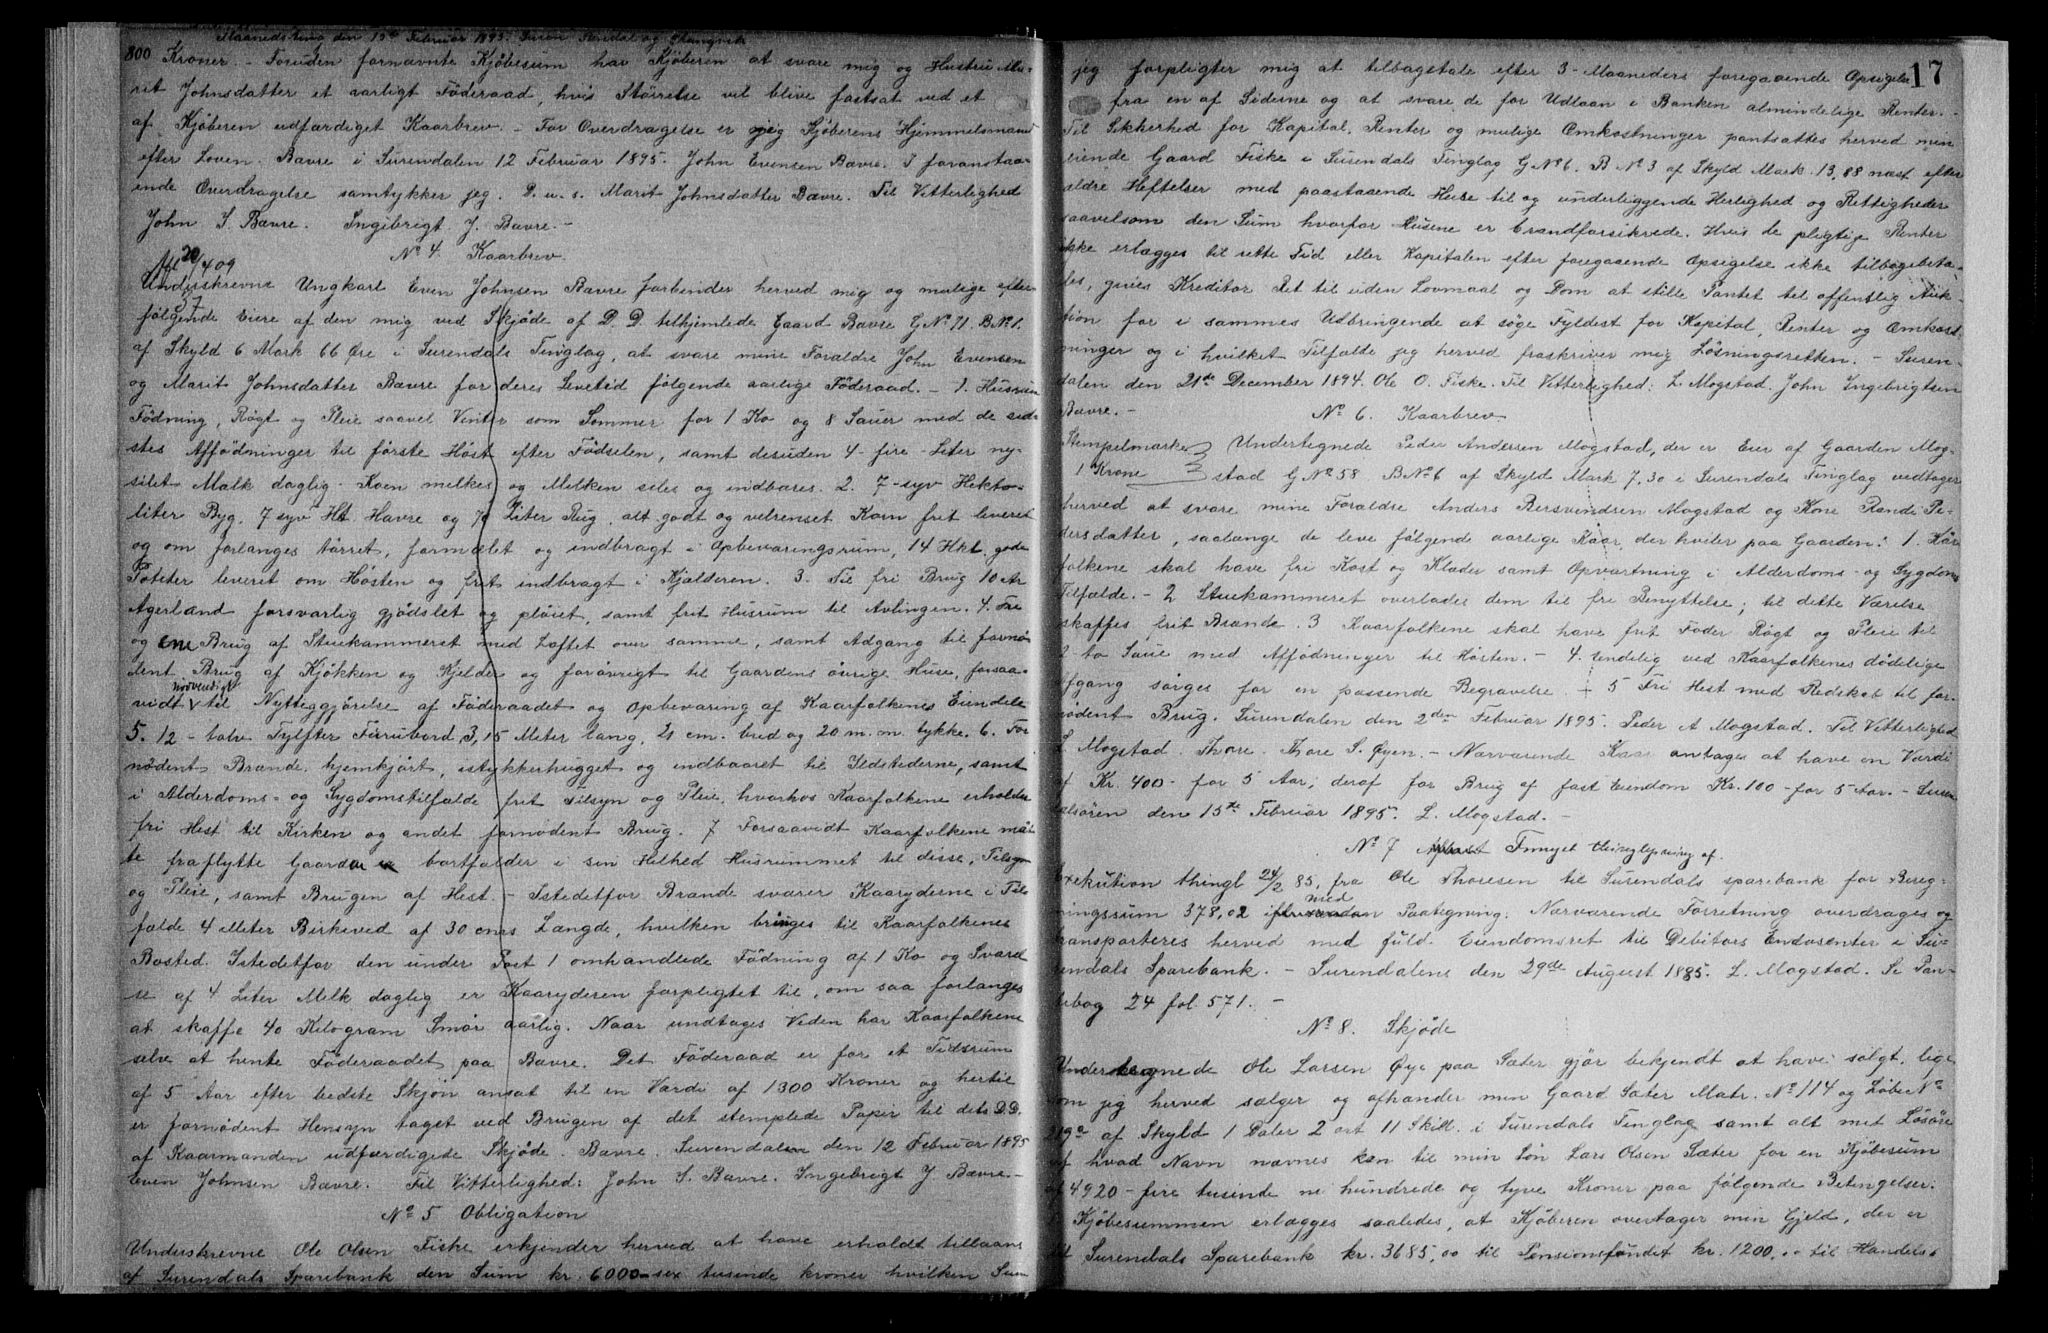 Maanedsting den 15de Februar 1895. Surendal og Stangvik
800 Kroner. – Foruden fornævnte Kjøbesum har Kjøberen at svare mig og Hustru Ma-
rit Johnsdatter et aarligt Föderaad, hvis Störrelse vil blive fastsat ved et
af Kjøberen udfærdiget Kaarbrev. – For Overdragelse er jeg Kjøberens Hjemmelsmand
efter Loven. Bævre i Surendalen 12 Februar 1895. John Evensen Bævre. I foranstaa-
ende Overdragelse samtykker jeg. D. u. s. Marit Johnsdatter Bævre. Til Vitterlighed
John S. Bævre. Ingebrigt J. Bævre. –
No 4. Kaarbrev.
Afl 20/4 09
Underskrevne Ungkarl Even Johnsen Bævre forbinder herved mig og mulige efter-
37
følgende Eiere af den mig ved Skjøde af D. D. tilhjemlede Gaard Bævre G No 71. B No 1.
af Skyld 6 Mark 66 Øre i Surendals Tinglag, at svare mine Forældre John Evensen
og Marit Johnsdatter Bævre for deres Levetid følgende aarlige Föderaad. – 1. Husrum
Födning, Røgt og Pleie saavel Vinter som Sommer for 1 Ko og 8 Sauer med de sid-
stes Affödninger til første Höst efter Födselen, samt desuden 4 – fire – Liter ny-
silet Mælk daglig. Koen melkes og Melken siles og indbæres. 2. 7 – syv Hekto-
liter Byg, 7 syv Hl. Havre og 70 Liter Rug, alt godt og velrenset Korn frit leveret
og om forlanges tørret, formalet og indbragt i Opbevaringsrum, 14 Hkt. gode
Poteter leveret om Hösten og frit indbragt i Kjælderen. 3. Til fri Brug 10 Ar
Agerland forsvarlig gjödslet og plöiet, samt frit Husrum til Avlingen. 4. Fri
og ene Brug af Stuekammeret med Loftet over samme, samt Adgang til fornø-
dent Brug af Kjøkken og Kjelder og forövrigt til Gaardens övrige Huse, forsaa-
vidt nødvendigt til Nyttiggjörelse af Föderaadet og Opbevaring af Kaarfolkenes Eiendele
5. 12 – tolv – Tylfter Furubord, 3,15 Meter lang, 21 cm. bred og 20 m.m. tykke. 6. For
nödent Brænde, hjemkjørt, istykkerhugget og indbaaret til Ildstederne, samt
i Alderdoms- og Sygdomstilfælde frit Tilsyn og Pleie, hvorhos Kaarfolkene erholder
fri Hest til Kirken og andet fornödent Brug. 7 Forsaavidt Kaarfolkene maat-
te fraflytte Gaarden bortfalder i sin Helhed Husrummet til disse, Tilsyn
og Pleie, samt Brugen af Hest. – Istedetfor Brænde svarer Kaaryderne i Til-
fælde 4 Meter Birkeved af 30 cms Længde, hvilken bringes til Kaarfolkenes
Bosted. Istedetfor den under Post 1 omhandlede Födning af 1 Ko og Svarel-
se af 4 Liter Melk daglig er Kaaryderen forpligtet til, om saa forlanges
at skaffe 40 Kilogram Smör aarlig. Naar undtages Veden har Kaarfolkene
selv at hente Föderaadet paa Bævre. Det Föderaad er for et Tidsrum
af 5 Aar efter bedste Skjön ansat til en Værdi af 1300 Kroner og hertil
er fornødent Hensyn taget ved Brugen af det stemplede Papir til dets D.D.
af Kaarmanden udfærdigede Skjøde. Bævre. Surendalen den 12 Februar 1895
Even Johnsen Bævre. Til Vitterlighed: John S. Bævre. Ingebrigt J Bævre –
No 5 Obligation
Underskrevne Ole Olsen Fiske erkjender herved at have erholdt tillaans
af Surendals Sparebank den Sum kr. 6000 – sex tusinde kroner hvilken Sum
17
jeg forpligter mig at tilbagetale efter 3 – Maaneders foregaaende Opsigelse
fra en af Siderne og at svare de for Udlaan i Banken almindelige Renter. –
Til Sikkerhed for Kapital, Renter og mulige Omkostninger pantsættes herved min
eiende Gaard Fiske i Surendals Tinglag G No 6. B No 3 af Skyld Mark. 13,88 næst efter
ældre Heftelser med paastaaende Huse til og underliggende Herlighed og Rettigheder
saavelsom den Sum hvorfor Husene er brandforsikrede. Hvis de pligtige Renter
ikke erlægges til rette Tid eller Kapitalen efter foregaaende Opsigelse ikke tilbagebeta-
les, gives Kreditor Ret til uden Lovmaal og Dom at stille Pantet til offentlig Auk-
tion for i sammes Udbringende at søge Fyldest for Kapital, Renter og Omkost-
ninger og i hvilket Tilfælde jeg herved fraskriver mig Løsningsretten. – Suren-
dalen den 21de December 1894. Ole O. Fiske. Til Vitterlighed: L Mogstad. John Ingebrigtsen
Bævre. –
No 6. Kaarbrev.
Stempelmærke Undertegnede Peder Andersen Mogstad, der er Eier af Gaarden Mog-
1 Krone stad G No 58 B No 6 af Skyld Mark 7,30 i Surendals Tinglag vedtager
herved at svare mine Forældre Anders Bersvendsen Mogstad og Kone Randi Pe-
dersdatter, saalænge de leve følgende aarlige Kaar, der hviler paa Gaarden: 1. Kår-
folkene skal have fri Kost og Klæder samt Opvartning i Alderdoms- og Sygdoms
Tilfælde. – 2 Stuekammeret overlades dem til fri Benyttelse; til dette Værelse
skaffes frit Brænde. 3 Kaarfolkene skal have frit Foder Røgt og Pleie til
2 – to Saue med Affödninger til Hösten. – 4. Endelig ved Kaarfolkenes dødelige
Afgang sörges for en passende Begravelse. – 5 Fri Hest med Redskab til for-
nödent Brug. Surendalen den 2den Februar 1895. Peder A Mogstad. Til Vitterlighed
L Mogstad. Thore. Thore S. Øyen. – Nærværende Kaar antages at have en Værdi
af Kr. 400 – for 5 Aar; deraf for Brug af fast Eiendom Kr. 100 – for 5 Aar. – Suren-
dalsören den 15de Februar 1895. L. Mogstad. –
No 7 Fornyet thinglysning af.
Exekution thingl 24/2 85, fra Ole Thoresen til Surendals sparebank for Bereg-
ningssum 378,02 med Paategning: Nærværende Forretning overdrages og
transporteres herved med fuld Eiendomsret til Debitors Endosenter i Su-
rendals Sparebank. – Surendalens den 29de August 1885. L. Mogstad. Se Pan-
tebog 24 fol. 571. –
No 8. Skjøde
Undertegnede Ole Larsen Øye paa Sæter gjør bekjendt at have solgt, lige-
som jeg herved sælger og afhænder min Gaard Sæter Matr. No 114 og Løbe No
219a af Skyld 1 Daler 2 ort 11 Skill. i Surendals Tinglag samt alt mit Løsöre
af hvad Navn nævnes kan til min Søn Lars Olsen Sæter for en Kjøbesum
af 4920 – fire tusinde ni hundrede og tyve Kroner paa følgende Betingelser:
Kjøbesummen erlægges saaledes, at Kjøberen overtager min Gjeld, der er
til Surendals Sparebank kr. 3685,00 til Pensionsfondet kr. 1200,00 til Handels-